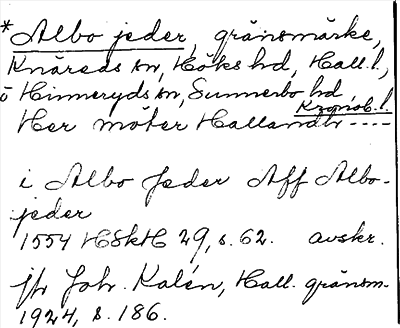 *Albo jeder, gränsmärke,
Knäreds sn, Höks hd, Hall. l.,
ö Hinneryds sn, Sunnerbo hd
Kronob. l.
Her möter Hallandh ----
i Albo Jeder Aff Albo-
jeder
1554 HSkH 29, s. 62. avskr.
jfr Joh. Kalén, Hall. gränsm.
1924, s. 186.